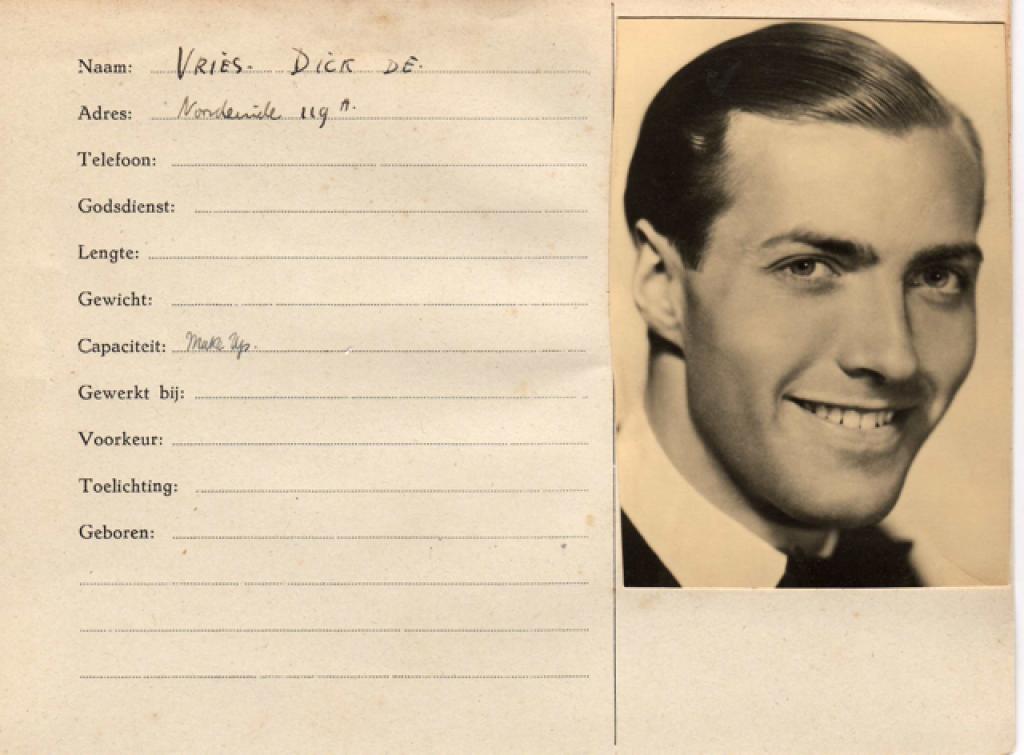 Naam: VRIES. DICK DE.
Adres: Nordeinde 119 A.
Telefoon:
Godsdienst:
Lengte:
Gewicht:
Capaciteit: Make Up.
Gewerkt bij:
Voorkeur:
Toelichting:
Geboren: